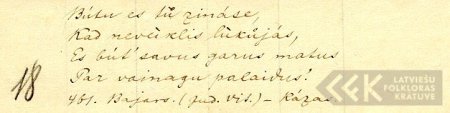 Būtu es tū zināse,
Kad nevēiklis lūkojās,
Es būt' savus garus matus
Par vainagu palaidus!
18
461. Bajars. (gud. vit.) – Kāzas
LATVIEŠU
FOLKLORAS
KRĀTUVE